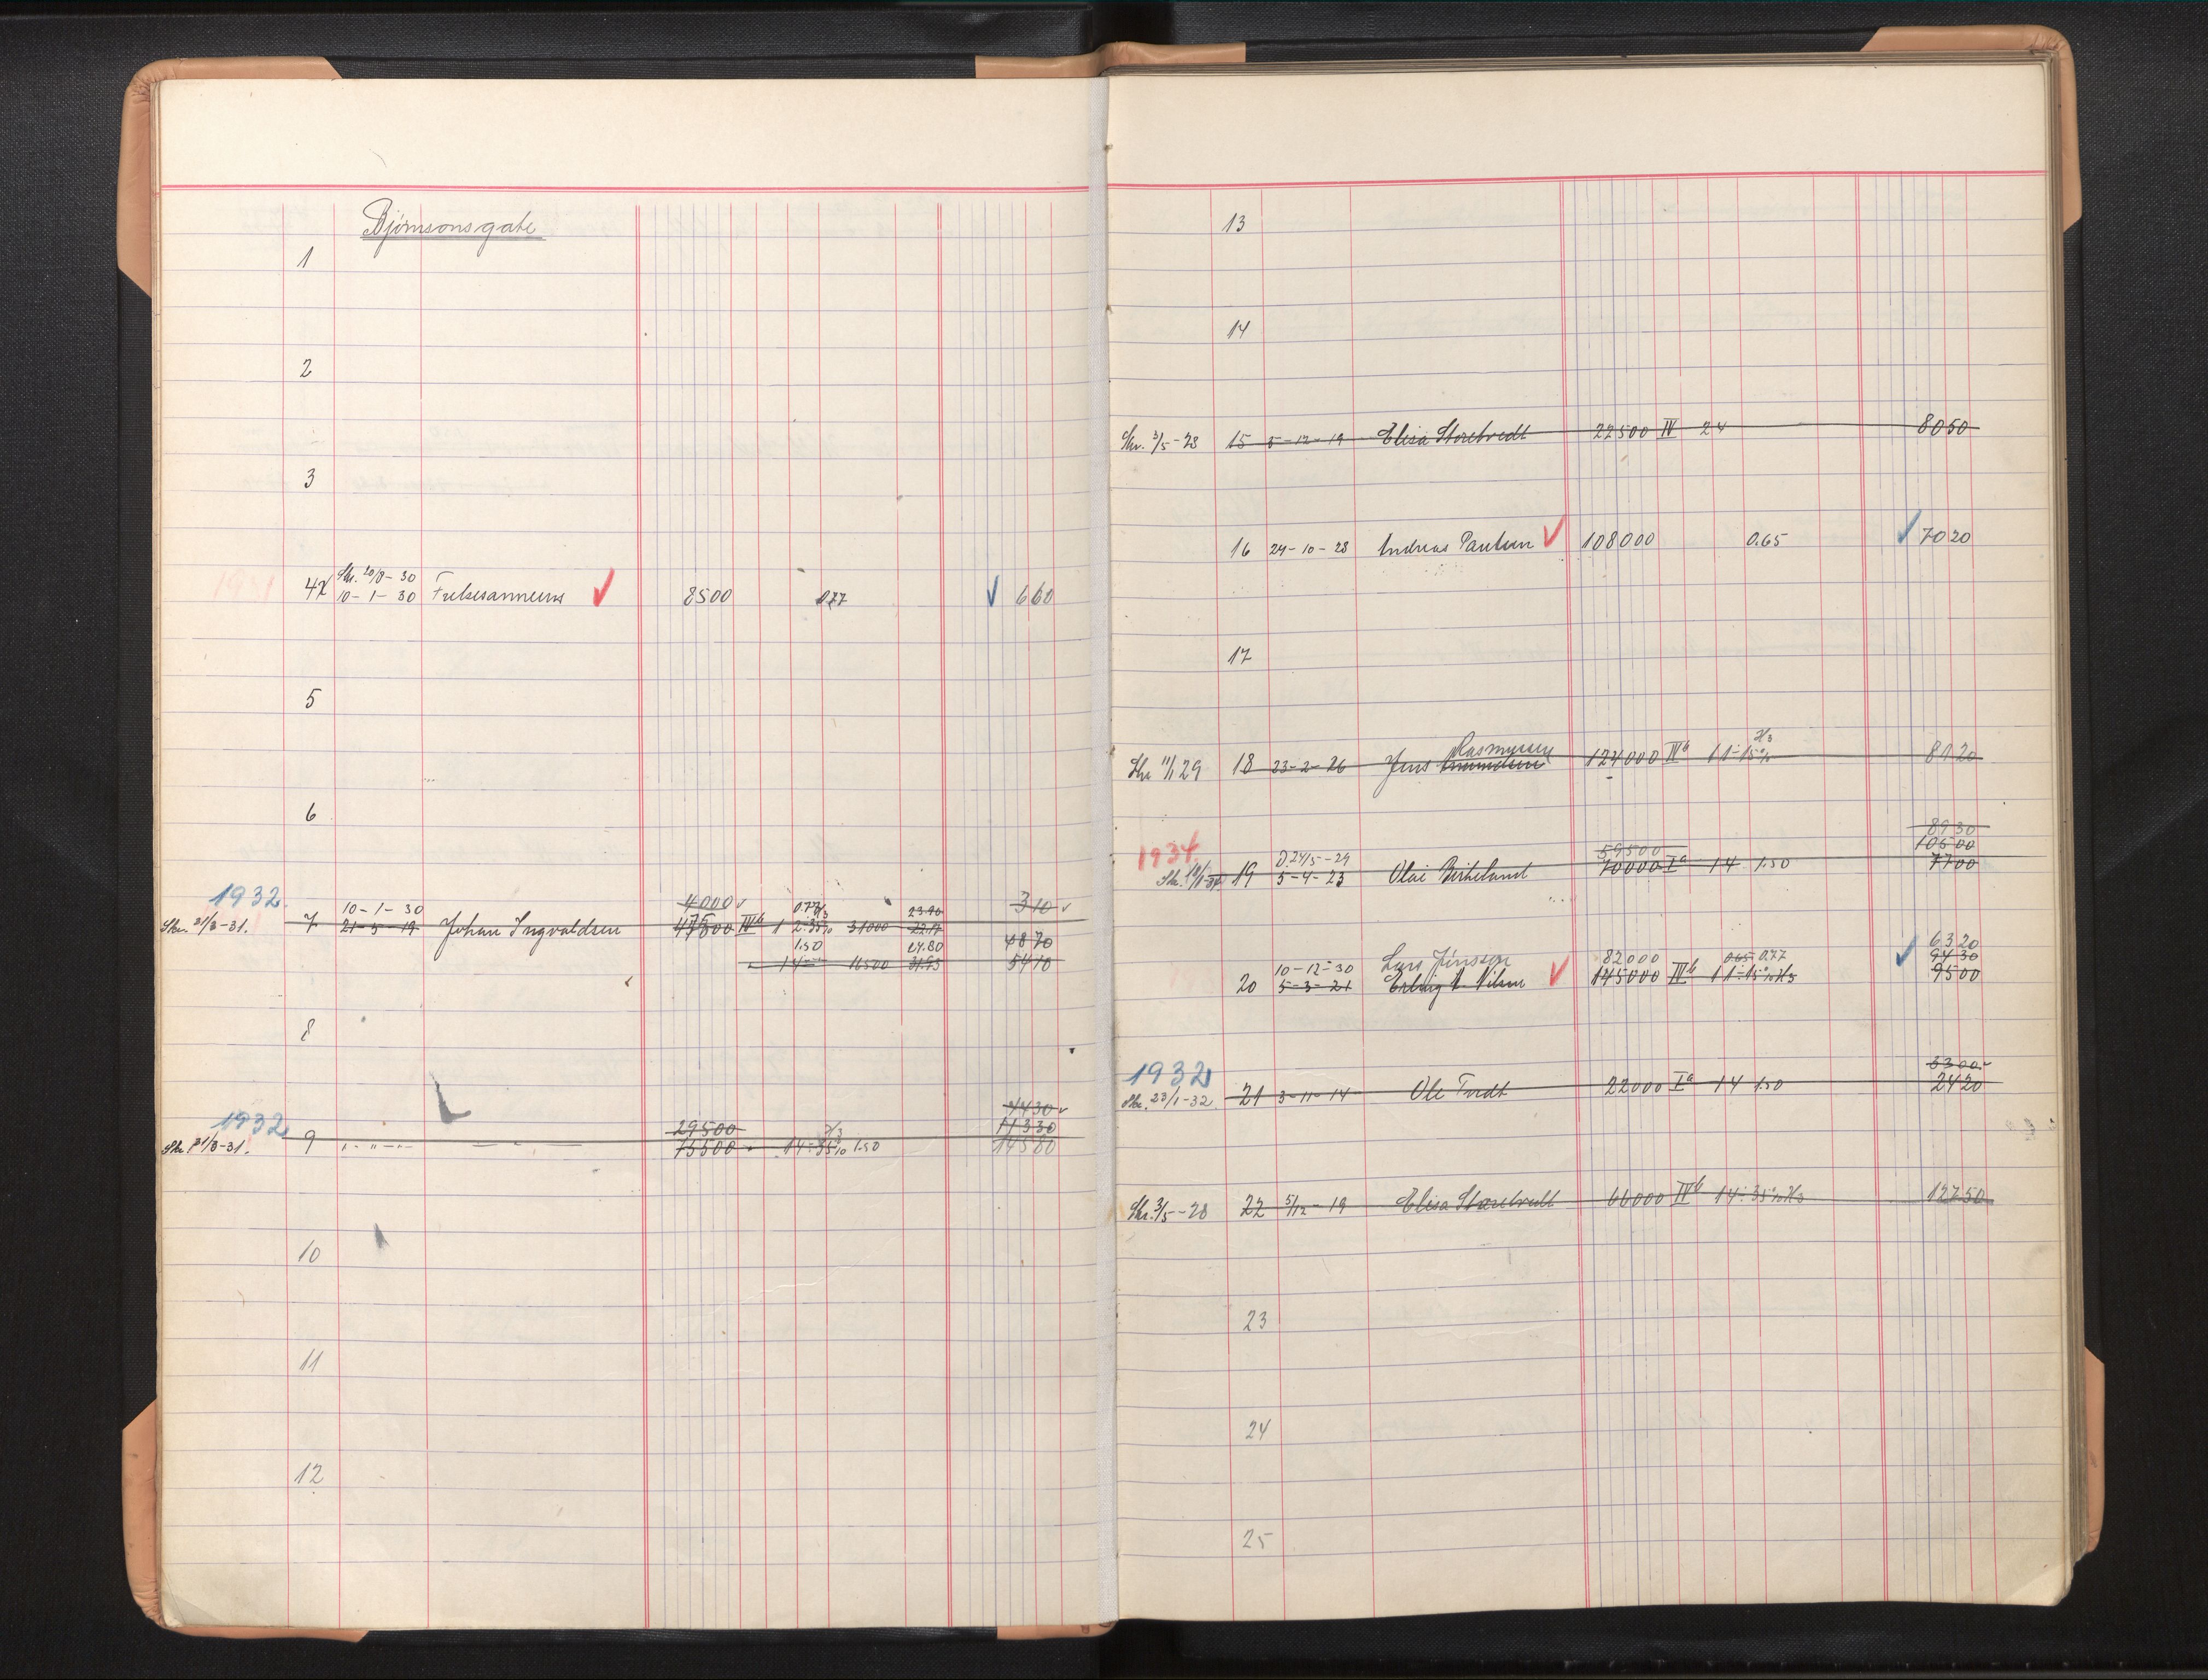 Bjørnsonsgate
1
2
3
Skr. 20/8-30
4 10-1-30 Frelsesarmeens 8500 0.77 660
5
6
1932
10-1-30 4000 0.77 23.90 310
Skr. 31/3-31. 7 21-5-19 Johan Ingvaldsen 47500 IVb 1 2.35% 31000 22.17
1.50 24.80 4870
" 14 16500 31.93 5410
8
4430
1932 29500 11330
Skr. 31/3-31. 9 " " " — " — 75500 " 14-35% 1.50 14580
10
11
12
13
14
Skr. 3/5-28 15 5-12-19 Elisa Storetvedt 22500 IV 24 8050
16 24-10-28 Andreas Paulsen 108000 0.65 7020
17
Rasmussen H3
Skr 11/1 29 18 23-2-26 Jens 124000 IVb 11-15% 8120
8930
1934. D.24/5-29 59500 10500
Skr. 19 5-4-23 Olai Birkeland 70000 Ia 14 1.50 7700
6320
10-12-30 Lars Jönsson 82000 0.65 0.77 9430
20 5-3-21 Erling Nilsen 145000 IVb 11-15% H3 9500
1932 3300
Skr. 23/1-32. 21 3-11-14 Ole Tvedt 22000 Ia 14 1.50 2420
Skr. 3/5-28 22 5/12-19 Elisa Storetvedt 66000 IVb 14-35% H3 12750
23
24
25